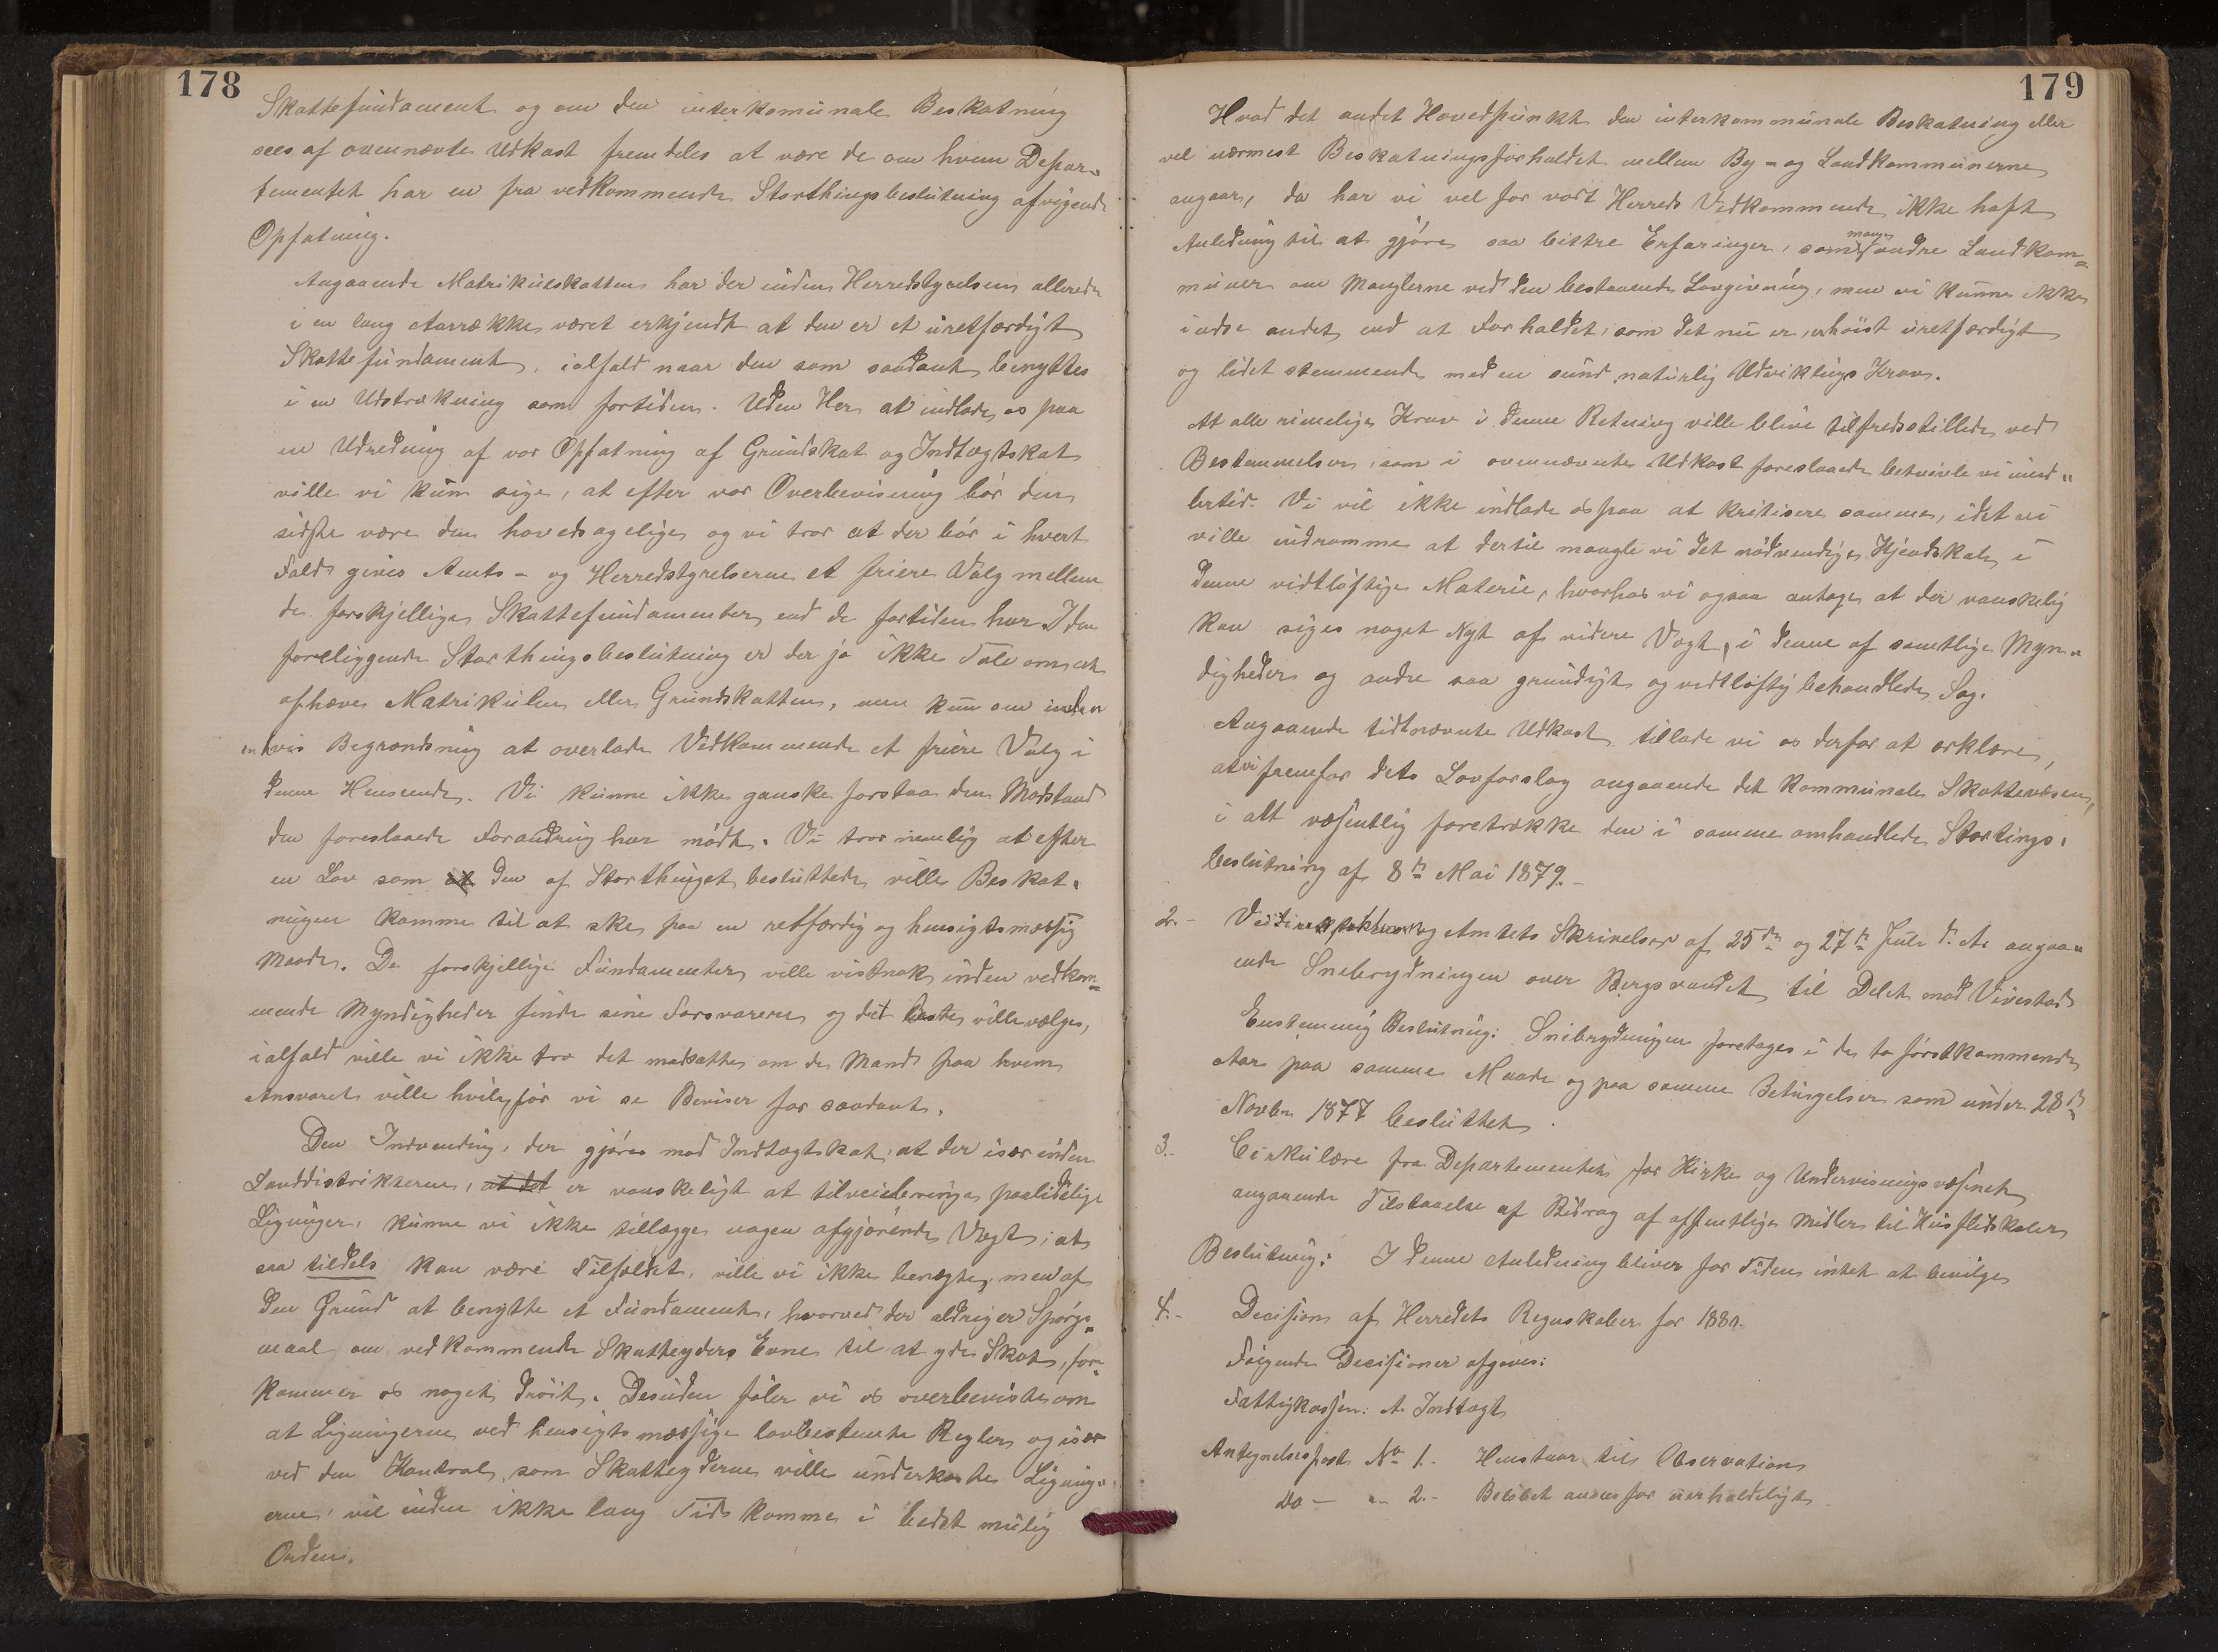 178
Skattefundament og om den interkomunale Beskatning
sees af ovennævnte Udkast fremdeles at være de om hvem Depar-
tementet har en fra vedkommende Storthingsbeslutning afvigende
Opfatning.
Angaaende Matrikulskatten har der inden Herredstyrelsen allerede
i en lang Aarrække været erkjendt at den er et uretfærdigt
Skattefundament, ialfald naar den som saadant benyttes
i en Udstrækning som fortiden. Uden Her at indlade os paa
en Udredning af vor Opfatning af Grundskat og Indtægtskat
ville vi kun sige, at efter vor Overbevisning bör den
sidste være den hovedsagelige og vi tror at der bör i hvert
Fald gives Amts- og Herredstyrelserne et friere Valg mellem
de forskjellige Skattefundamenter end de fortiden har. I den
foreliggende Storthingsbeslutning er der jo ikke Tale om at
ophæve Matrikulen eller Grundskatten, men kun om inden
en vis Begrændsning at overlade Vedkommende et friere Valg i
denne Henseende. Vi kunne ikke ganske forstaa den Modstand
den foreslaaede Forandring har mödt. Vi tror nemlig at efter
en Lov som den af Storthinget besluttede ville Beskat-
ningen komme til at ske paa en retfærdig og hensigtsmæssig
Maade. De forskjellige Fundamenter ville vistnok inden vedkom=
mende Myndigheder finde sine Forsvarere og det bedste ville vælges,
ialfald ville vi ikke tro det modsatte om de Mænd paa hvem
Ansvaret ville hvile för vi se Beviser for saadant.
Den Indvending, der gjöres mod Indtægtskat, at der især inden
Landdistrikterne, at det er vanskeligt at tilveiebringe paalidelige
Ligninger, kunne vi ikke tillægge nogen afgjörende Vægt; at
saa tildels kan være Tilfældet, ville vi ikke benægte, men af
den Grund at benytte et Fundament, hvorved der aldrig er Spörgs=
maal om vedkommende Skatteyders Evne til at yde Skat, fore-
kommer os noget dröit. Desuden föler vi os overbeviste om
at Ligningerne ved hensigtsmæssige lovbestemte Regler og især
ved den Kontrol, som Skatteyderne ville underkaste Lignin-
erne, vil inden ikke lang Tid komme i bedst mulig
Orden.
179
Hvad det andet Hovedpunkt den interkommunale Beskatning eller
vel nærmest Beskatningsforholdet mellem By- og Landkommunerne
angaar, da har vi vel for vort Herreds Vedkommende ikke haft
Anledning til at gjöre saa bittre Erfaringer, som mange andre Landkom=
muner om Manglerne ved den bestaaende Lovgivning, men vi kunne ikke
indse andet end at Forholdet, som det nu er, er höist uretfærdigt
og lidet stemmende med en sund naturlig Udviklings Krav.
At alle rimelige Krav i denne Retning ville blive tilfredsstillede ved
Bestemmelsen, som i ovennævnte Udkast foreslaaede betvivle vi imid-
lertid. Vi vil ikke indlade os paa at kritisere samme, idet vi
ville indrømme at dertil mangle vi det nödvendige Kjendskab i
denne vidtlöftige Materie, hvorhos vi ogsaa antage at der vanskelig
kan siges noget Nyt af videre Vægt, i denne af samtlige Myn-
digheder og andre saa grundigt og vidtlöftig behandlede Sag.
Angaaende tidtnævnte Udkast tillade vi os derfor at erklære,
at vi fremfor dets Lovforslag angaaende det kommunale Skattevæsen,
i alt væsentlig foretrække den i samme omhandlede Stortings-
beslutning af 8de Mai 1879.-
2.- og Amtets Skrivelser af 25de og 27de Juli d. A. angaa-
ende Snebrydningen over Bergsvandet til Delet mod Vivestad
Enstemmig Beslutning: Snebrydningen foretages i de to förstkommende
Aar paa samme Maade og paa samme Betingelser som under 28de
Novbr 1877 besluttet.
3.- Cirkulære fra Departementet for Kirke og Undervisningsvæsenet
angaaende Tilstaaelse af Bidrag af offentlige Midler til Husflidskoler
Beslutning: I denne Anledning bliver for Tiden intet at bevilge
4.- Decision af Herredets Regnskaber for 1880.
Fölgende Decisioner afgives:
Fattigkassen: A. Indtægt
Antegnelsespost No 1.- Henstaar til Observation
do - " 2.- Belöbet ansees for uerholdeligt